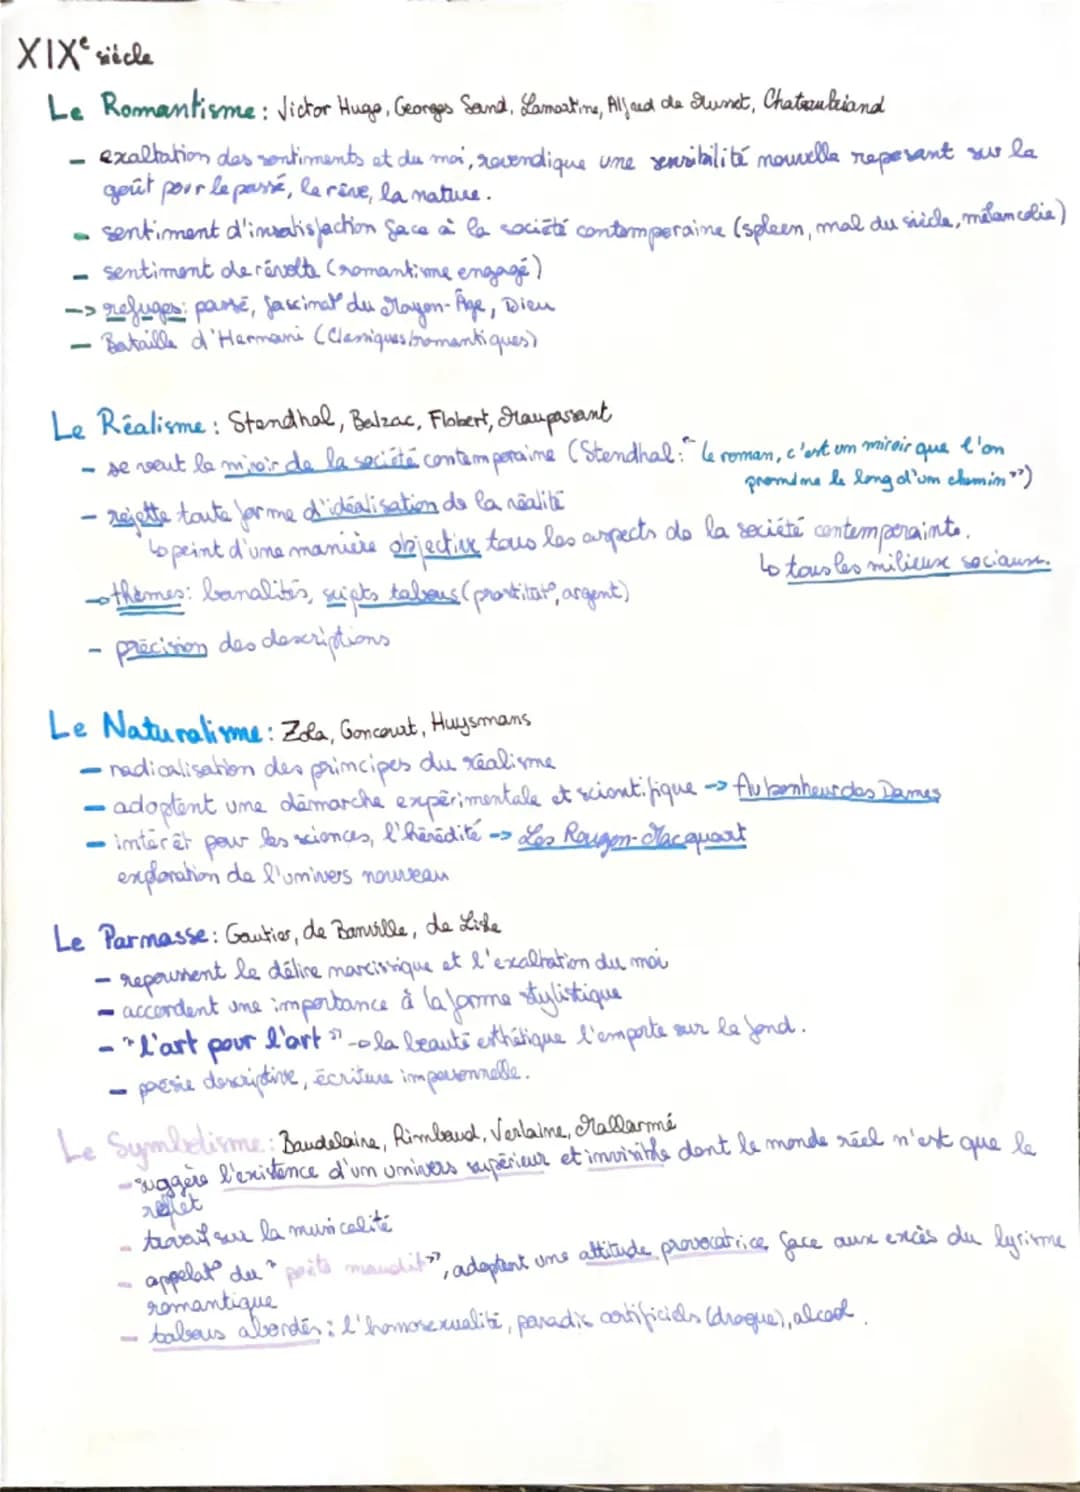 XIXe siècle
Le Romantisme : Victor Hugo, Georges Sand, Lamartine, Alfred de Musset, Chateaubriand
- exaltation des sentiments et du moi, revendique une sensibilité nouvelle reposant sur la
goût pour le passé, le rêve, la nature.
- sentiment d'insatisfaction face à la société contemporaine (spleen, mal du siècle, mélancolie)
- sentiment de révolte (romantisme engagé)
-> refuges : passé, fascinat° du Moyen-Âge, Dieu
- Bataille d'Hernani (Classiques/romantiques)
Le Réalisme : Stendhal, Balzac, Flobert, Maupassant
- se veut le miroir de la société contemporaine (Stendhal : "Le roman, c'est un miroir que l'on
promène le long d'un chemin")
- rejette toute forme d'idéalisation de la réalité
↳ peint d'une manière objective tous les aspects de la société contemporainte.
↳ tous les milieux sociaux.
→ thèmes : banalités, sujets tabous (prostitut°, argent)
- précision des descriptions
Le Naturalisme : Zola, Goncourt, Huysmans
- radicalisation des principes du réalisme
- adoptent une démarche expérimentale et scientifique -> Au bonheur des Dames
- intérêt pour les sciences, l'hérédité -> Les Rougon-Macquart
exploration de l'univers nouveau
Le Parnasse : Gautier, de Banville, de Lisle
- repoussent le délire narcissique et l'exaltation du moi
- accordent une importance à la forme stylistique
- "L'art pour l'art" → la beauté esthétique l'emporte sur le fond.
- poésie descriptive, écriture impersonnelle.
Le Symbolisme : Baudelaire, Rimbaud, Verlaine, Mallarmé
- suggère l'existence d'un univers supérieur et invisible dont le monde réel n'est que le
reflet
- travail sur la musicalité
- appelat° du "poète maudit", adoptant une attitude provocatrice face aux excès du lyrisme
romantique
- tabous abordés : l'homosexualité, paradis artificiels (drogue), alcool.